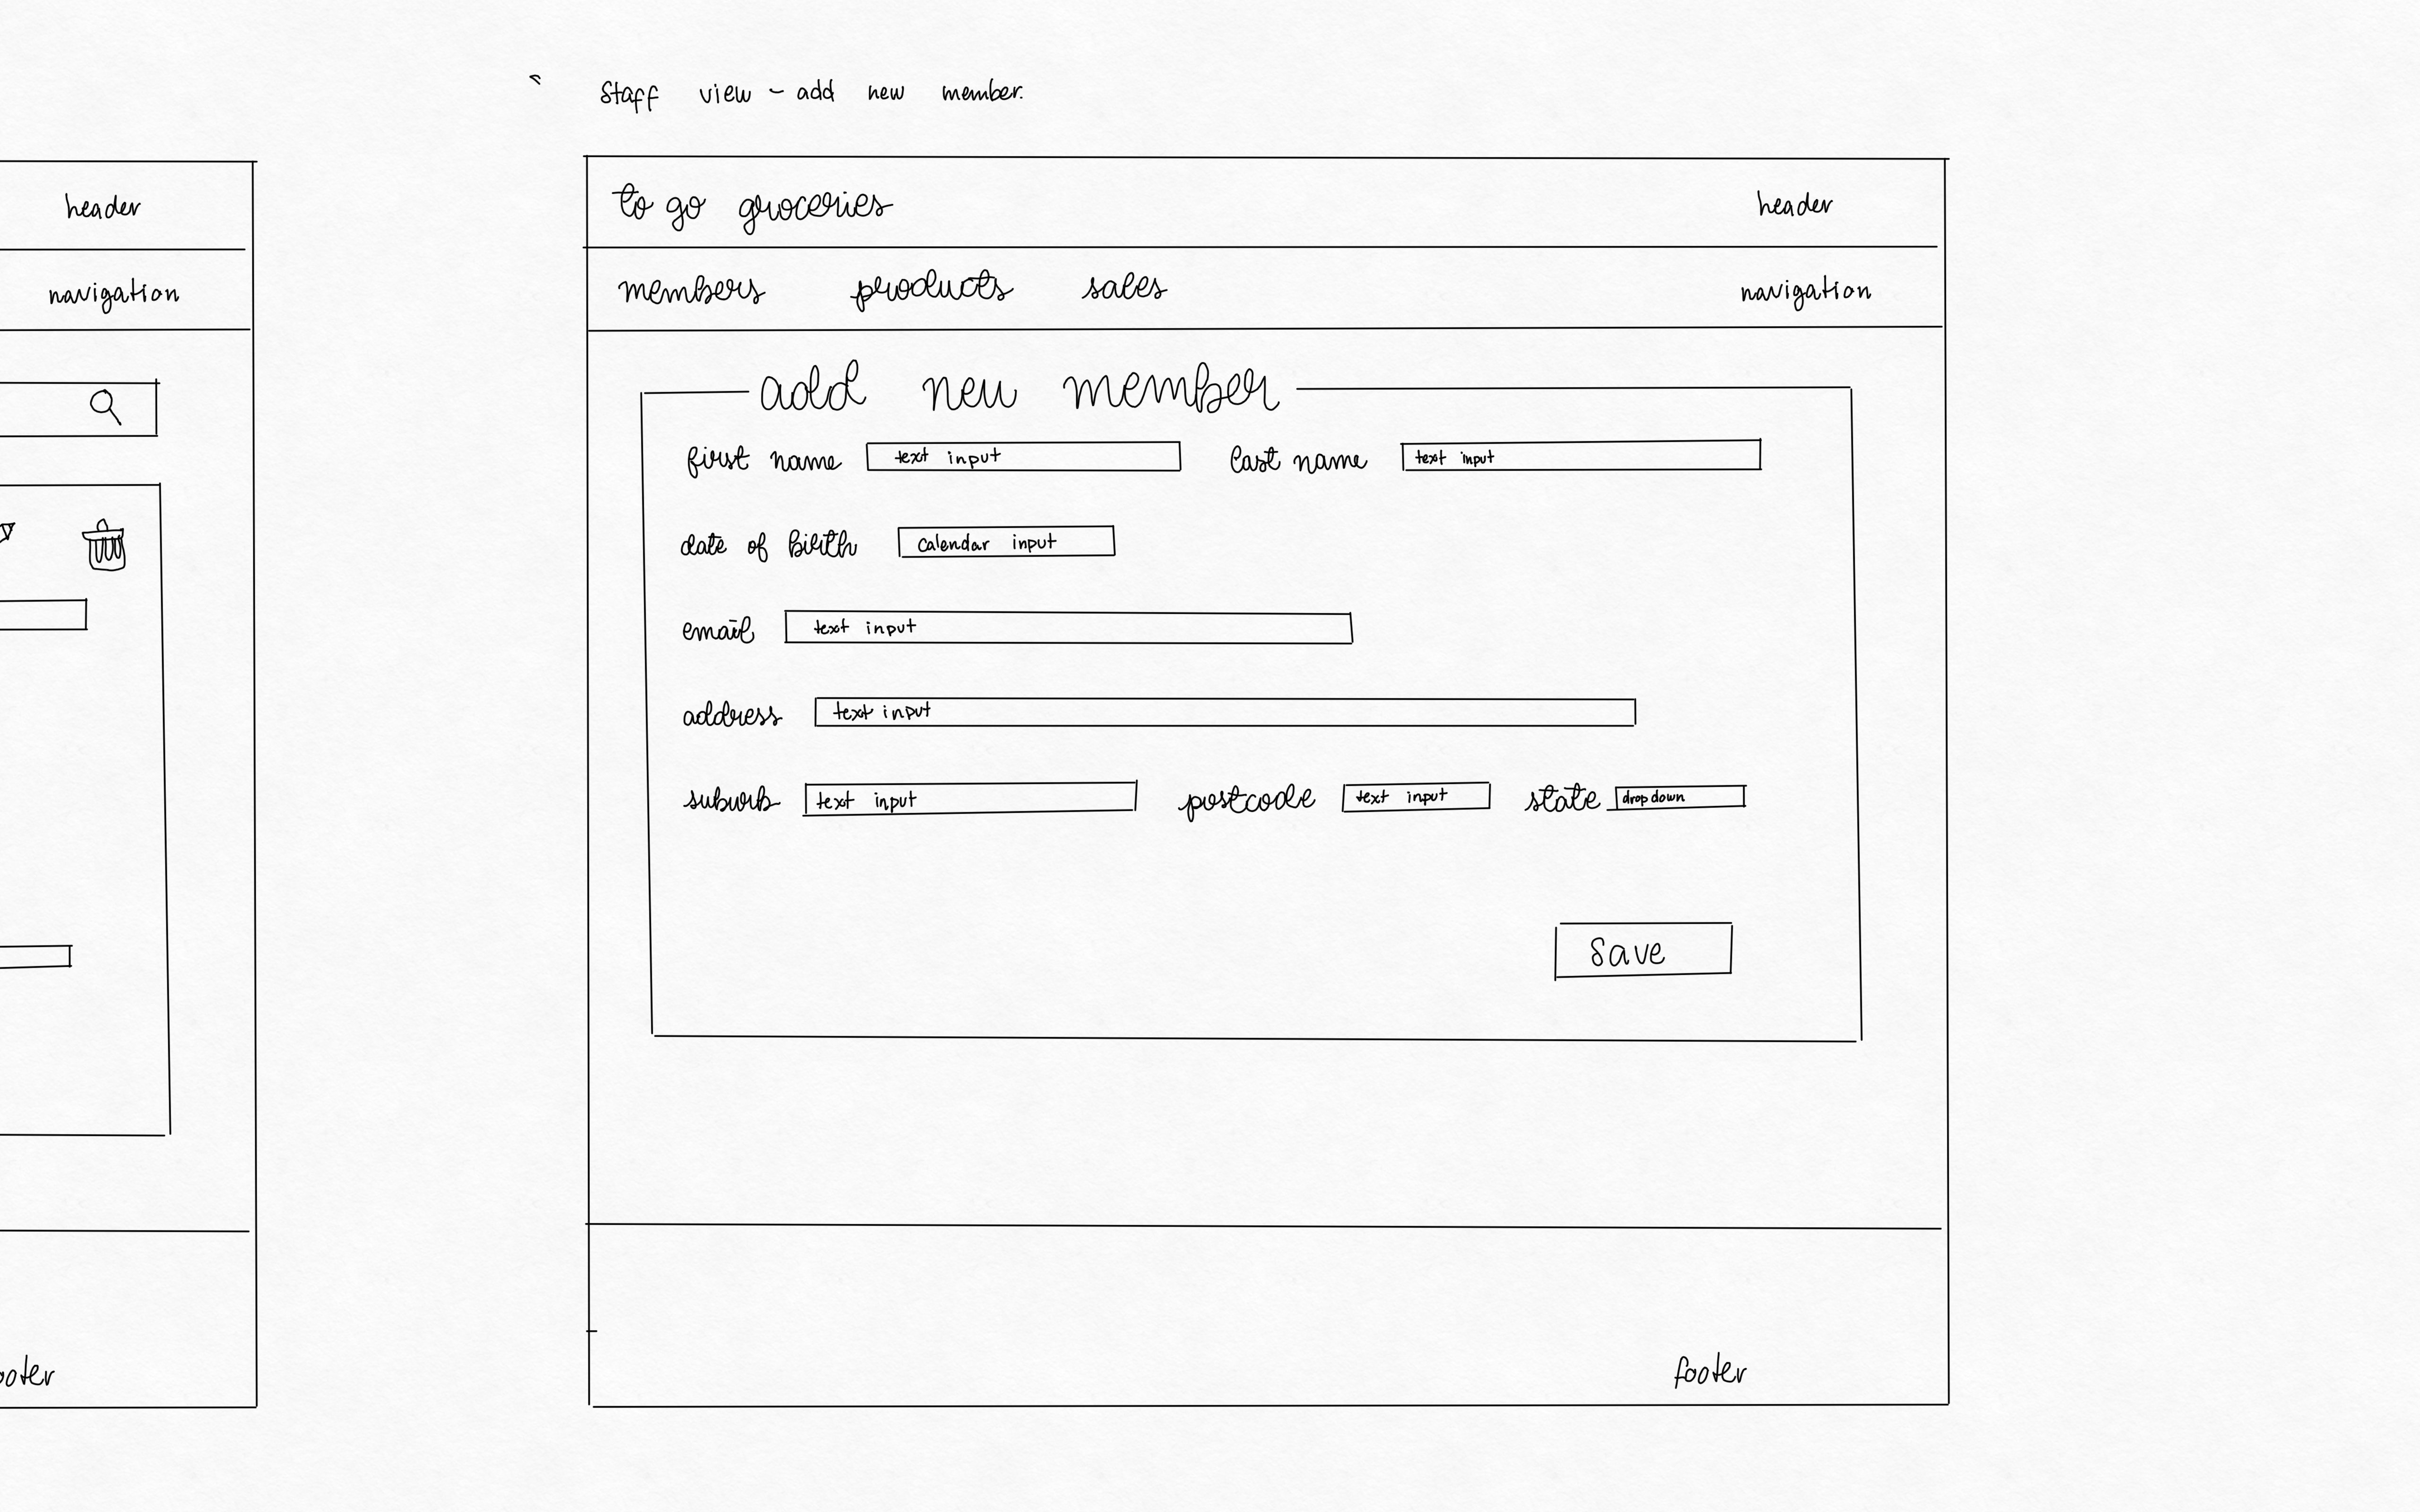 Staff view - add new member.
header
navigation
to go groceries header
members products sales navigation
add new member
first name text input last name text input
date of birth calendar input
email text input
address text input
suburb text input postcode text input state drop down
Save
footer